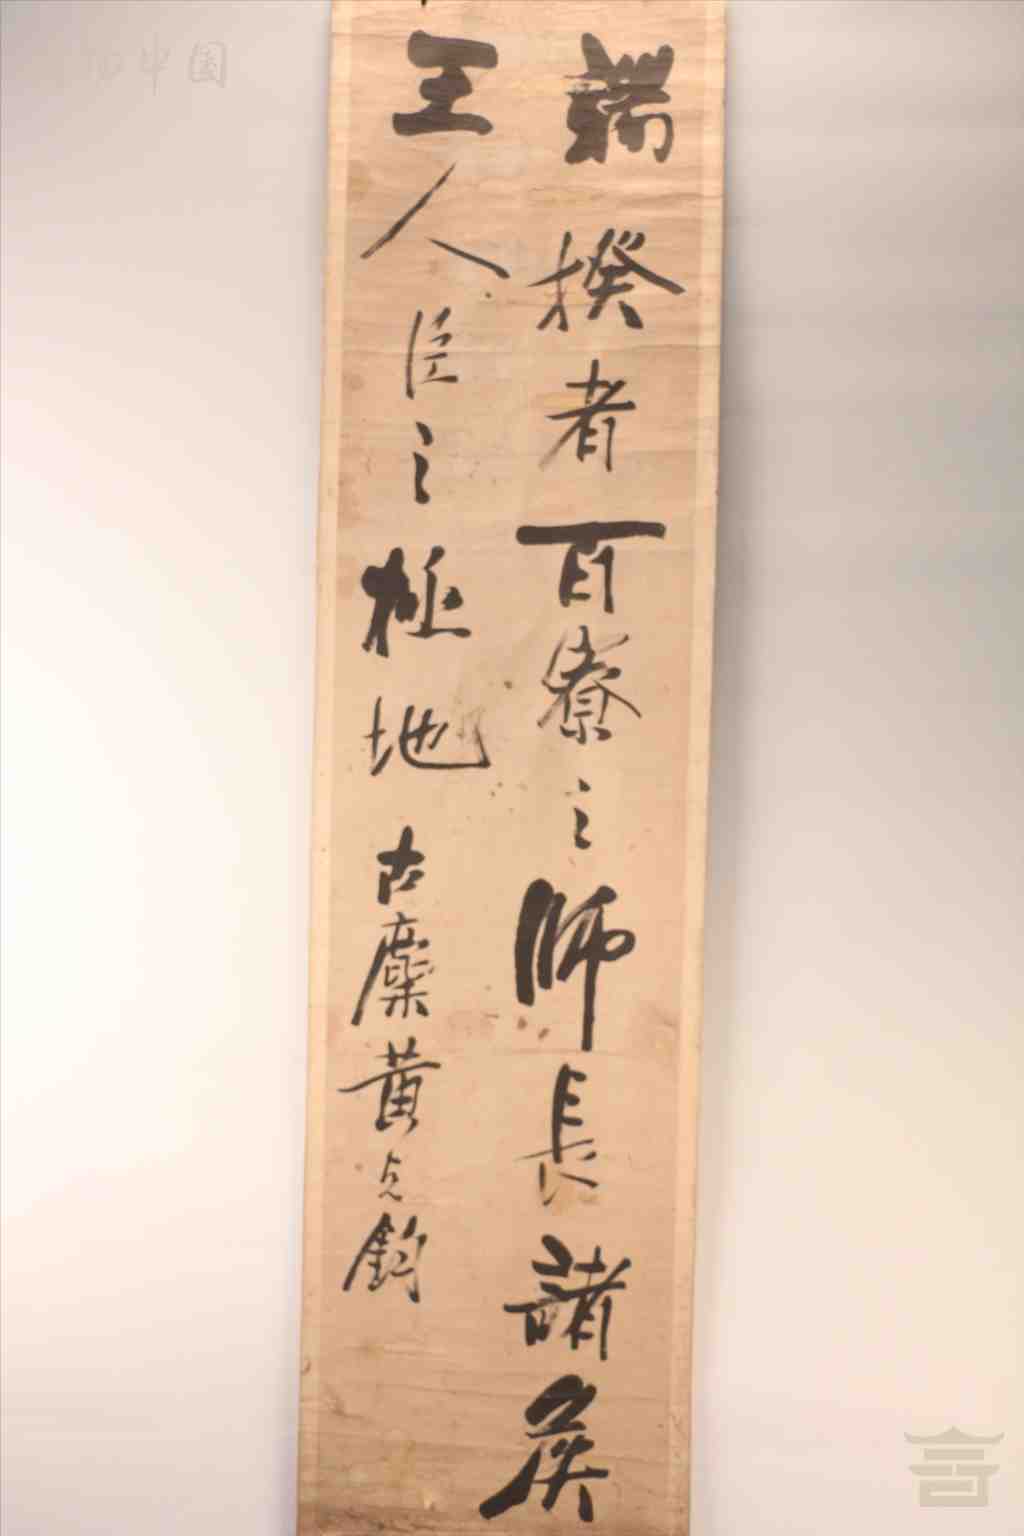 端揆者百寮之師長諸侯
王人臣之極地
古麋黄元鈞
中国